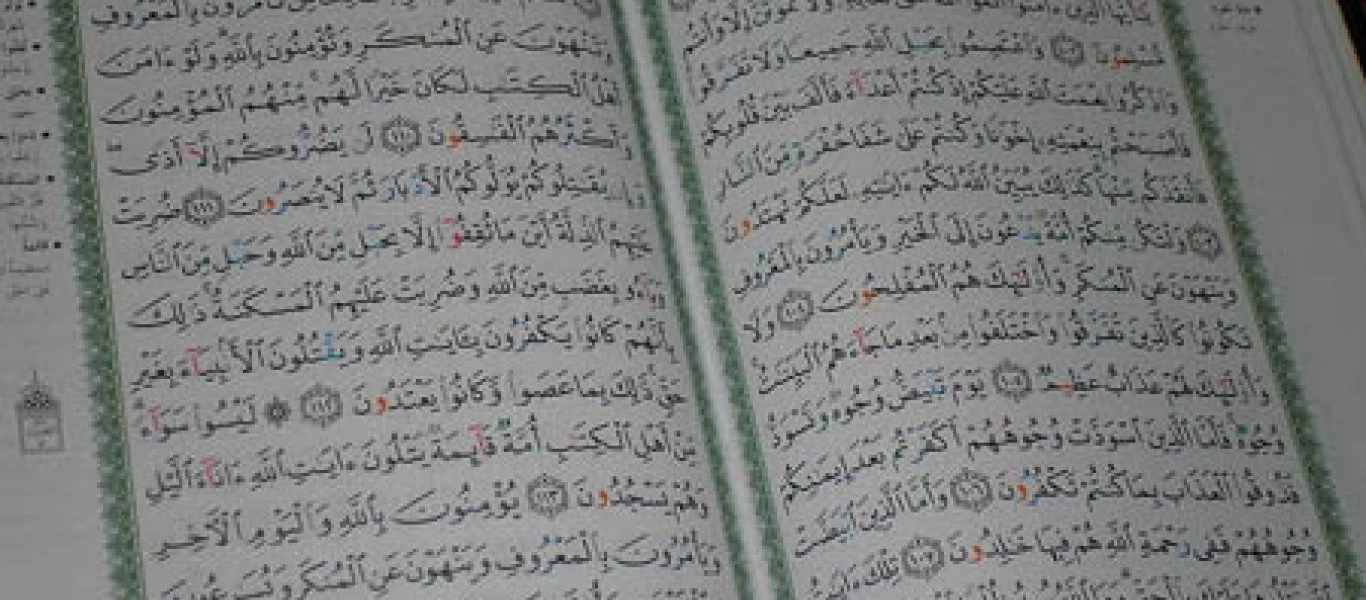 يَٰٓأَيُّهَا ٱلَّذِينَ ءَامَنُوا۟ ٱتَّقُوا۟ ٱللَّهَ حَقَّ تُقَاتِهِۦ وَلَا تَمُوتُنَّ إِلَّا وَأَنتُم
مُّسْلِمُونَ ١٠٢ وَٱعْتَصِمُوا۟ بِحَبْلِ ٱللَّهِ جَمِيعًا وَلَا تَفَرَّقُوا۟
وَٱذْكُرُوا۟ نِعْمَتَ ٱللَّهِ عَلَيْكُمْ إِذْ كُنتُمْ أَعْدَآءً فَأَلَّفَ بَيْنَ قُلُوبِكُمْ
فَأَصْبَحْتُم بِنِعْمَتِهِۦٓ إِخْوَٰنًا وَكُنتُمْ عَلَىٰ شَفَا حُفْرَةٍ مِّنَ ٱلنَّارِ
فَأَنقَذَكُم مِّنْهَا كَذَٰلِكَ يُبَيِّنُ ٱللَّهُ لَكُمْ ءَايَٰتِهِۦ لَعَلَّكُمْ تَهْتَدُونَ
١٠٣ وَلْتَكُن مِّنكُمْ أُمَّةٌ يَدْعُونَ إِلَى ٱلْخَيْرِ وَيَأْمُرُونَ بِٱلْمَعْرُوفِ
وَيَنْهَوْنَ عَنِ ٱلْمُنكَرِ وَأُو۟لَٰٓئِكَ هُمُ ٱلْمُفْلِحُونَ ١٠٤ وَلَا
تَكُونُوا۟ كَٱلَّذِينَ تَفَرَّقُوا۟ وَٱخْتَلَفُوا۟ مِنۢ بَعْدِ مَا جَآءَهُمُ ٱلْبَيِّنَٰتُ
وَأُو۟لَٰٓئِكَ لَهُمْ عَذَابٌ عَظِيمٌ ١٠٥ يَوْمَ تَبْيَضُّ وُجُوهٌ وَتَسْوَدُّ
وُجُوهٌ فَأَمَّا ٱلَّذِينَ ٱسْوَدَّتْ وُجُوهُهُمْ أَكَفَرْتُم بَعْدَ إِيمَٰنِكُمْ
فَذُوقُوا۟ ٱلْعَذَابَ بِمَا كُنتُمْ تَكْفُرُونَ ١٠٦ وَأَمَّا ٱلَّذِينَ ٱبْيَضَّتْ
وُجُوهُهُمْ فَفِى رَحْمَةِ ٱللَّهِ هُمْ فِيهَا خَٰلِدُونَ ١٠٧ تِلْكَ ءَايَٰتُ
وَتَنْهَوْنَ عَنِ ٱلْمُنكَرِ وَتُؤْمِنُونَ بِٱللَّهِ وَلَوْ ءَامَنَ
أَهْلُ ٱلْكِتَٰبِ لَكَانَ خَيْرًا لَّهُم مِّنْهُمُ ٱلْمُؤْمِنُونَ
وَأَكْثَرُهُمُ ٱلْفَٰسِقُونَ ١١٠ لَن يَضُرُّوكُمْ إِلَّآ أَذًى
وَإِن يُقَٰتِلُوكُمْ يُوَلُّوكُمُ ٱلْأَدْبَارَ ثُمَّ لَا يُنصَرُونَ ١١١ ضُرِبَتْ
عَلَيْهِمُ ٱلذِّلَّةُ أَيْنَ مَا ثُقِفُوٓا۟ إِلَّا بِحَبْلٍ مِّنَ ٱللَّهِ وَحَبْلٍ مِّنَ ٱلنَّاسِ
وَبَآءُو بِغَضَبٍ مِّنَ ٱللَّهِ وَضُرِبَتْ عَلَيْهِمُ ٱلْمَسْكَنَةُ ذَٰلِكَ
بِأَنَّهُمْ كَانُوا۟ يَكْفُرُونَ بِـَٔايَٰتِ ٱللَّهِ وَيَقْتُلُونَ ٱلْأَنۢبِيَآءَ بِغَيْرِ
حَقٍّ ذَٰلِكَ بِمَا عَصَوا۟ وَّكَانُوا۟ يَعْتَدُونَ ١١٢ ۞ لَيْسُوا۟ سَوَآءً
مِّنْ أَهْلِ ٱلْكِتَٰبِ أُمَّةٌ قَآئِمَةٌ يَتْلُونَ ءَايَٰتِ ٱللَّهِ ءَانَآءَ ٱلَّيْلِ
وَهُمْ يَسْجُدُونَ ١١٣ يُؤْمِنُونَ بِٱللَّهِ وَٱلْيَوْمِ ٱلْءَاخِرِ
وَيَأْمُرُونَ بِٱلْمَعْرُوفِ وَيَنْهَوْنَ عَنِ ٱلْمُنكَرِ وَيُسَٰرِعُونَ